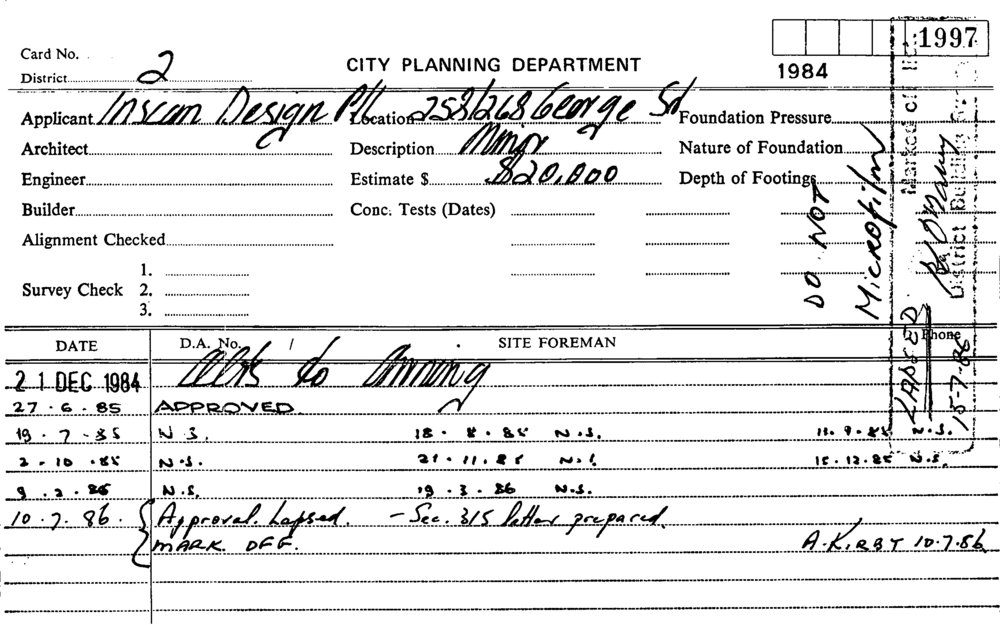 Card No.
1997
District 2
CITY PLANNING DEPARTMENT
1984
Applicant Inscon Design P/L Location 258/268 George St Foundation Pressure
Architect Description Minor Nature of Foundation
Engineer Estimate $ $20,000 Depth of Footings
Builder Conc. Tests (Dates)
Alignment Checked
1.
Survey Check 2.
3.
DO NOT
Microfilm
Marked off
District Building
LAPSED
15-7-86
DATE D.A. No. / SITE FOREMAN Phone
21 DEC 1984 Alts to Awning
27.6.85 APPROVED
19.7.85 N.S. 18.8.85 N.S. 11.9.85 N.S.
2.10.85 N.S. 21.11.85 N.S. 15.12.85 N.S.
9.2.86 N.S. 19.3.86 N.S.
10.7.86. Approval Lapsed. - Sec. 315 letter prepared.
MARK OFF. A. KIRBY 10.7.86